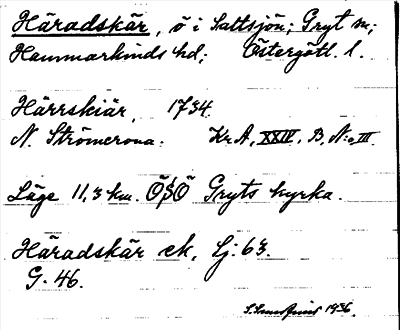 Häradskär, ö i Saltsjön; Gryt sn;
Hammarkinds hd; Östergötl. l.
Härrskiär, 1734.
N. Strömcrona. Kr.A, XXIV, B, N:o III.
Läge 11,3 km. ÖSÖ Gryts kyrka.
Häradskär ek, Lj. 63.
G. 46.
1936.